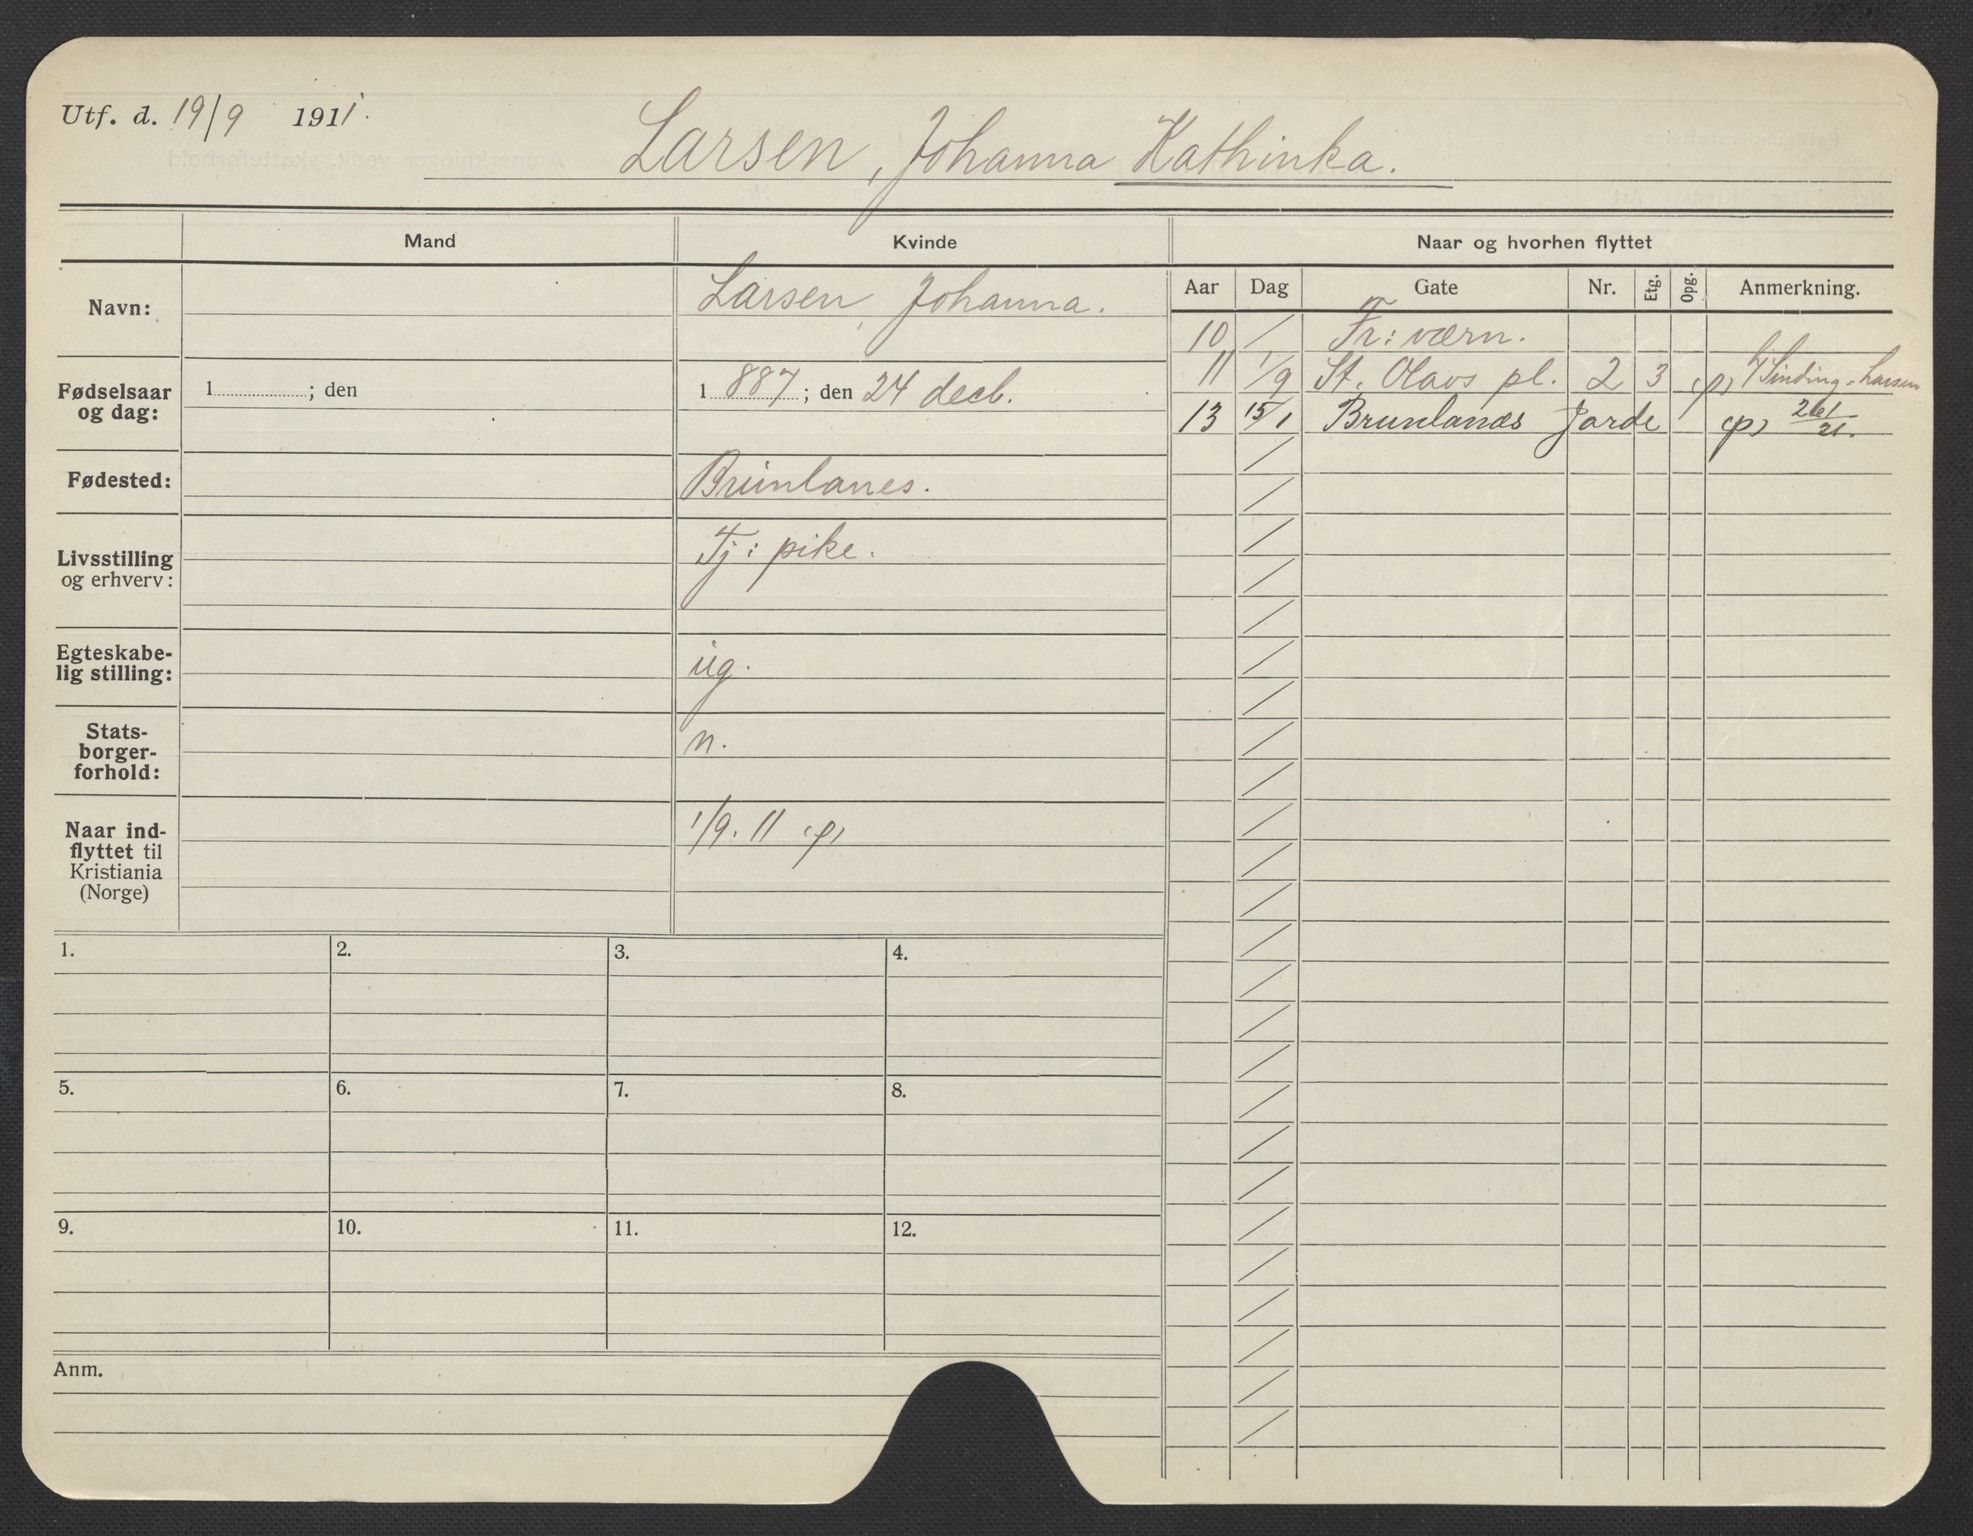 Utf. d. 19/9 1911.
Larsen, Johanna Kathinka.
Mand
Kvinde
Naar og hvorhen flyttet
Navn:
Larsen, Johanna.
Fødselsaar og dag:
1 ; den
1 887 ; den 24 decb.
Fødested:
Brunlanes.
Livsstilling og erhverv:
Tj: pike.
Egteskabe-
lig stilling:
ug.
Stats-
borger-
forhold:
n.
Naar ind-
flyttet til
Kristiania
(Norge)
1/9. 11 (p)
Aar Dag Gate Nr. Etg. Opg. Anmerkning.
10 / Fr: værn.
11 1/9 St. Olavs pl. 2 3 (p) Sinding-Larsen
13 15/1 Brunlanes Jorde (p)
1. 2. 3. 4.
5. 6. 7. 8.
9. 10. 11. 12.
Anm.